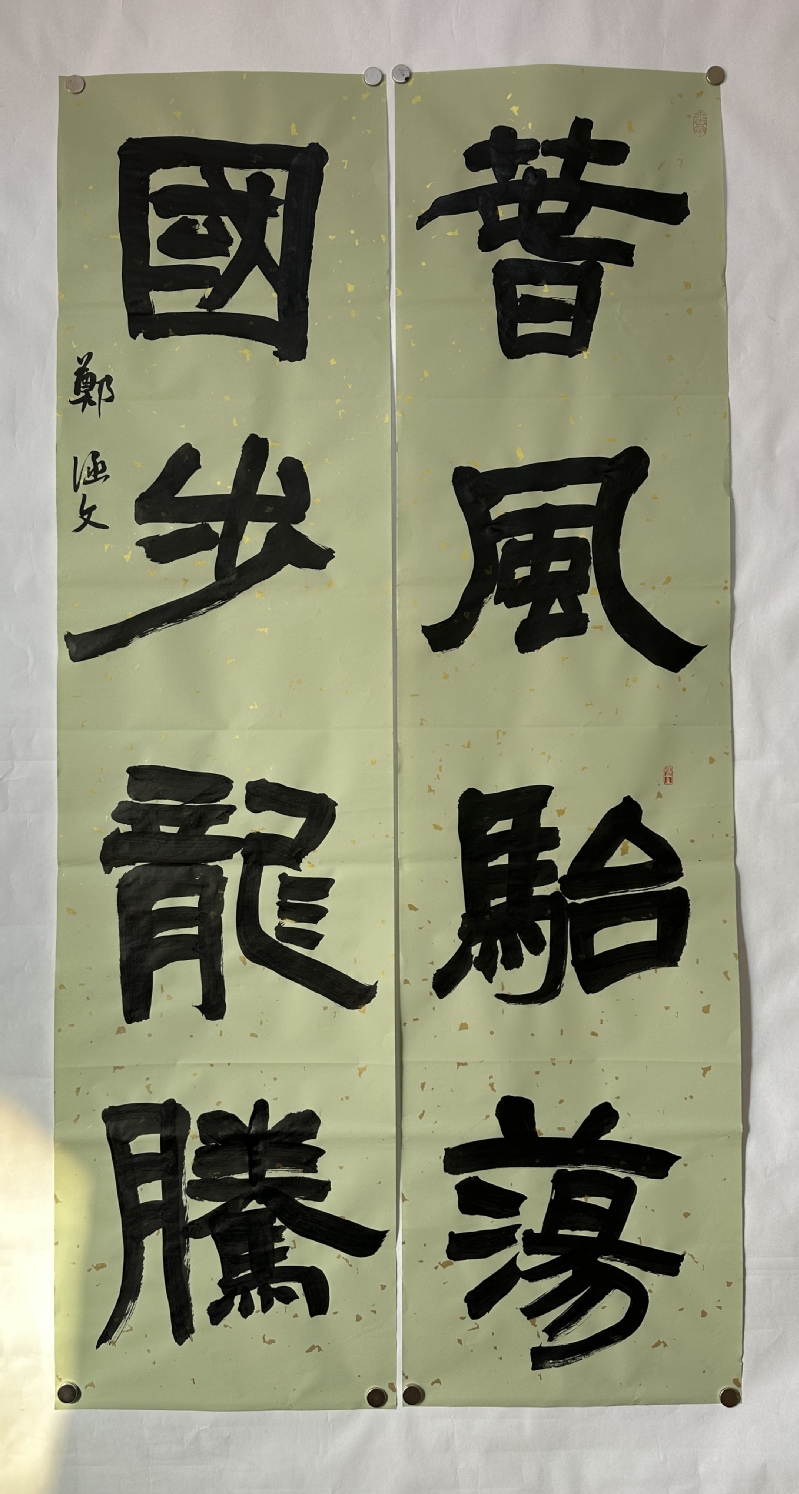 萅風駘蕩
國步龍騰
鄭涵文